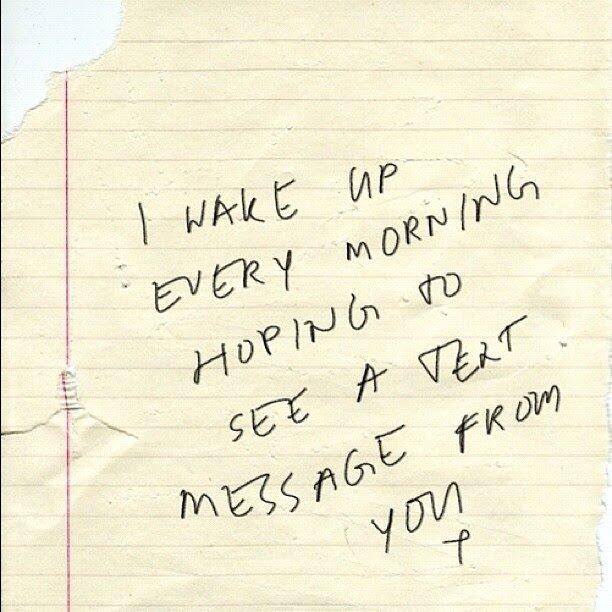 I WAKE UP
EVERY MORNING
HOPING TO
SEE A TEXT
MESSAGE FROM
YOU